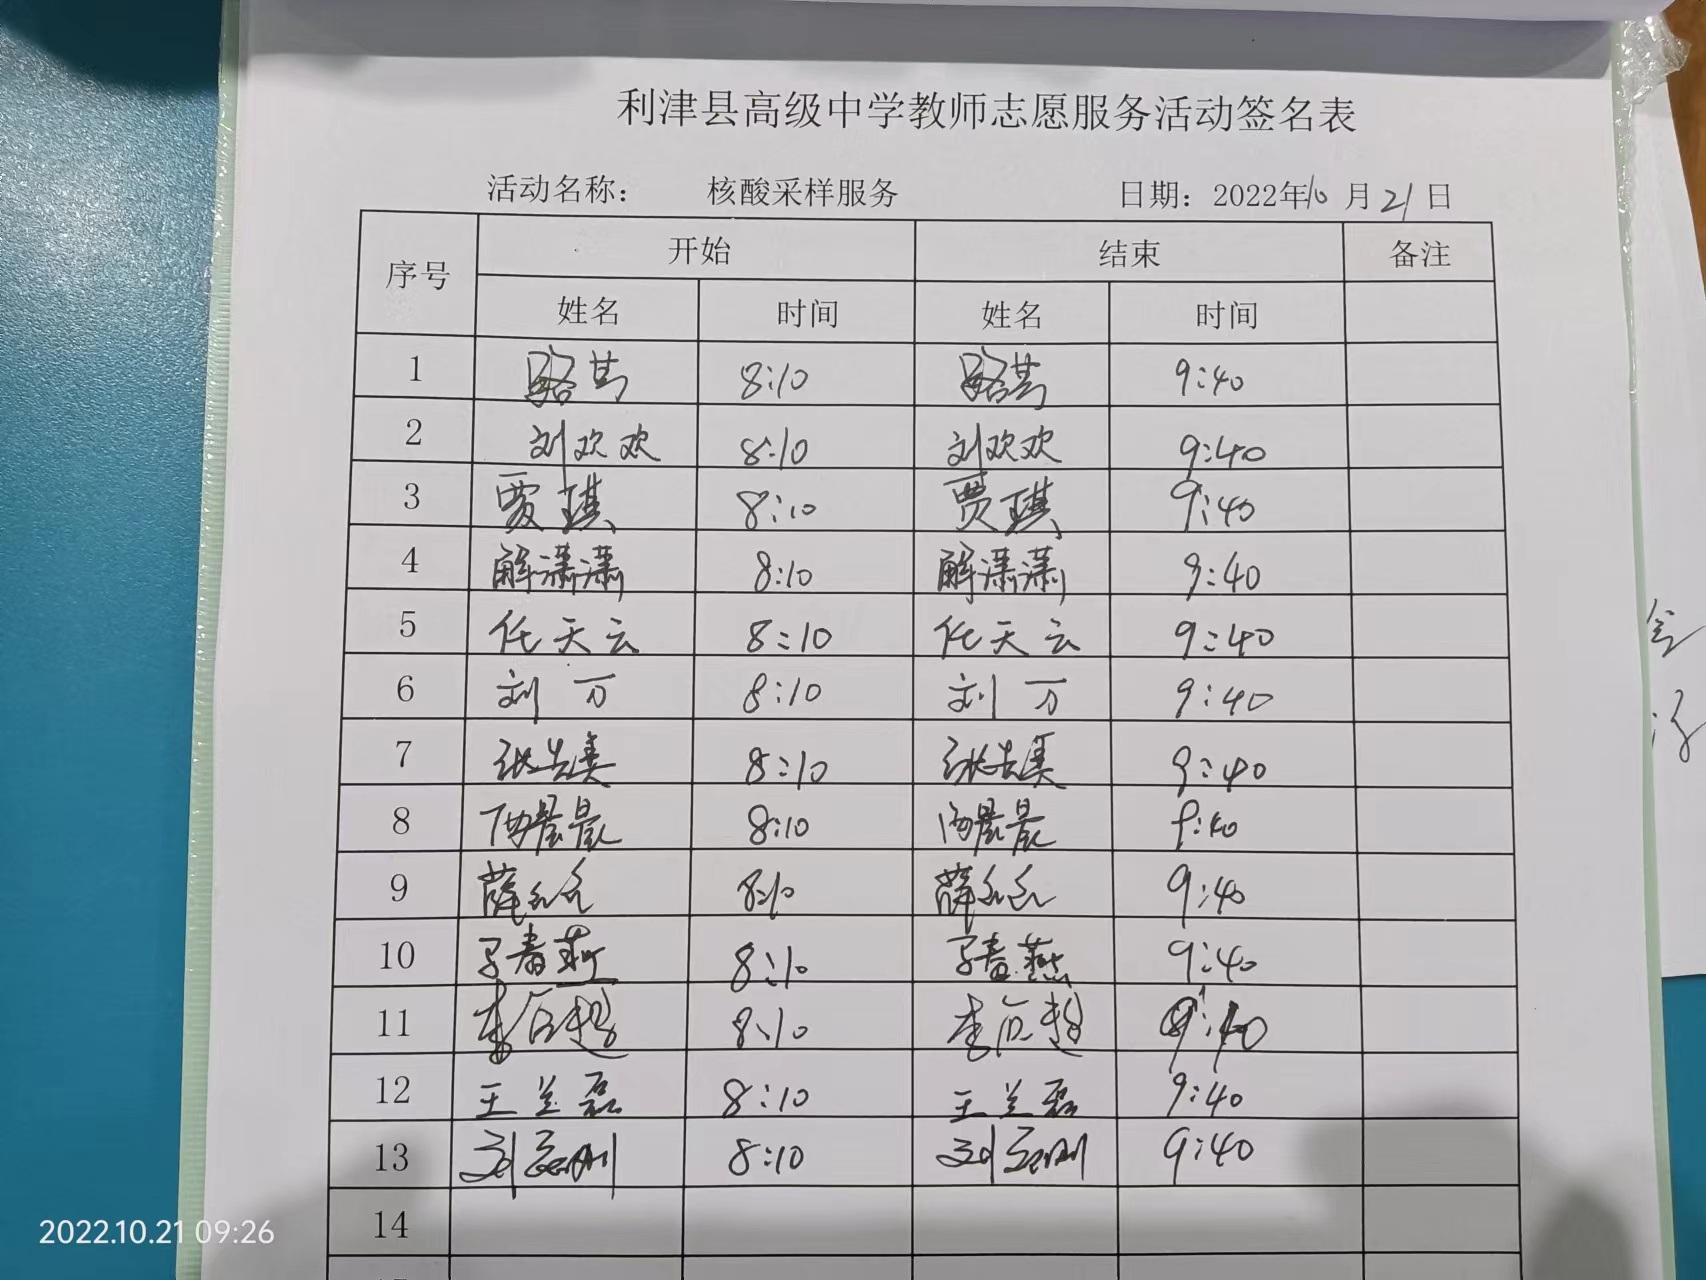 利津县高级中学教师志愿服务活动签名表
活动名称： 核酸采样服务 日期：2022年10月21日
序号 开始 结束 备注
姓名 时间 姓名 时间
1 8:10 9:40
2 刘欢欢 8:10 刘欢欢 9:40
3 贾琪 8:10 贾琪 9:40
4 解潇潇 8:10 解潇潇 9:40
5 任天云 8:10 任天云 9:40
6 刘万 8:10 刘万 9:40
7 8:10 9:40
8 8:10 9:40
9 薛 8:10 薛 9:40
10 春燕 8:10 春燕 9:40
11 李 超 8:10 李 超 9:40
12 王兰磊 8:10 王兰磊 9:40
13 刘 刚 8:10 刘 刚 9:40
14
2022.10.21 09:26